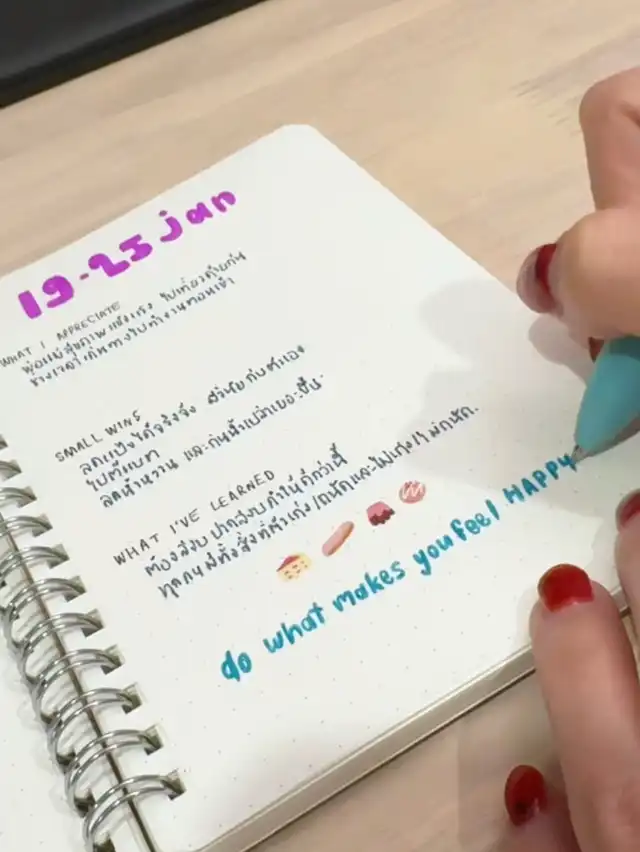 19-25 jan
WHAT I APPRECIATE
พ่อแม่สุขภาพแข็งแรง ไปเที่ยวด้วยกัน
ช่วงเวลาเดินทางไปทำงานตอนเช้า
SMALL WINS
ลดแป้งได้จริงจัง
ไปตีแบท
ลดน้ำหวาน และกินน้ำเปล่าเยอะขึ้น
WHAT I'VE LEARNED
ต้องสงบปากสงบคำให้ดีกว่านี้
ทุกคนมีทั้งสิ่งที่ตัวเก่ง/ถนัดและไม่เก่ง/ไม่ถนัด.
do what makes you feel HAPPY